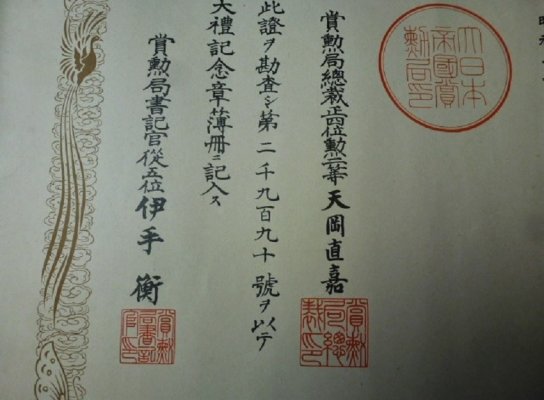 大日本帝國賞勲局印
賞勲局總裁正四位勲二等天岡直嘉
賞勲局總裁印
此證ヲ勘査シ第二千九百九十號ヲ以テ
大禮記念章簿冊ニ記入ス
賞勲局書記官從五位伊手衡
賞勲局書記官印